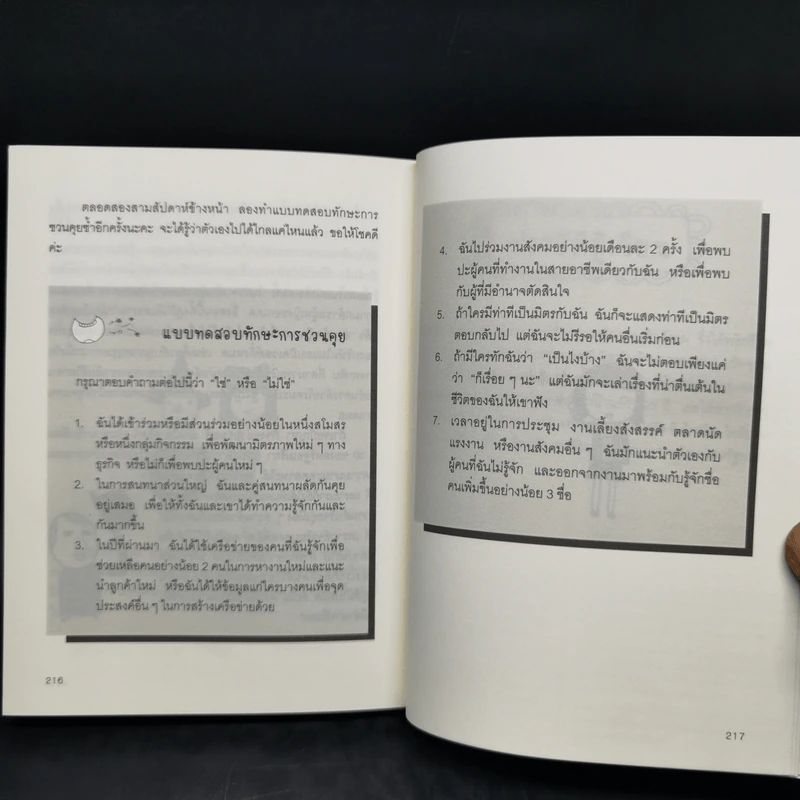 ตลอดสองสามสัปดาห์ข้างหน้า ลองทำแบบทดสอบทักษะการ
ชวนคุยซ้ำอีกครั้งนะคะ จะได้รู้ว่าตัวเองไปได้ไกลแค่ไหนแล้ว ขอให้โชคดี
ค่ะ
แบบทดสอบทักษะการชวนคุย
กรุณาตอบคำถามต่อไปนี้ว่า "ใช่" หรือ "ไม่ใช่"
1. ฉันได้เข้าร่วมหรือมีส่วนร่วมอย่างน้อยในหนึ่งสโมสร
หรือหนึ่งกลุ่มกิจกรรม เพื่อพัฒนามิตรภาพใหม่ ๆ ทาง
ธุรกิจ หรือไม่ก็เพื่อพบปะผู้คนใหม่ ๆ
2. ในการสนทนาส่วนใหญ่ ฉันและคู่สนทนาผลัดกันคุย
อยู่เสมอ เพื่อให้ทั้งฉันและเขาได้ทำความรู้จักกันและ
กันมากขึ้น
3. ในปีที่ผ่านมา ฉันได้ใช้เครือข่ายของคนที่ฉันรู้จักเพื่อ
ช่วยเหลือคนอย่างน้อย 2 คนในการหางานใหม่และแนะ
นำลูกค้าใหม่ หรือฉันได้ให้ข้อมูลแก่ใครบางคนเพื่อจุด
ประสงค์อื่น ๆ ในการสร้างเครือข่ายด้วย
216
4. ฉันไปร่วมงานสังคมอย่างน้อยเดือนละ 2 ครั้ง เพื่อพบ
ปะผู้คนที่ทำงานในสายอาชีพเดียวกับฉัน หรือเพื่อพบ
กับผู้ที่มีอำนาจตัดสินใจ
5. ถ้าใครมีท่าทีเป็นมิตรกับฉัน ฉันก็จะแสดงท่าทีเป็นมิตร
ตอบกลับไป แต่ฉันจะไม่รีรอให้คนอื่นเริ่มก่อน
6. ถ้ามีใครทักฉันว่า "เป็นไงบ้าง" ฉันจะไม่ตอบเพียงแค่
ว่า "ก็เรื่อย ๆ นะ" แต่ฉันมักจะเล่าเรื่องที่น่าตื่นเต้นใน
ชีวิตของฉันให้เขาฟัง
7. เวลาอยู่ในการประชุม งานเลี้ยงสังสรรค์ ตลาดนัด
แรงงาน หรืองานสังคมอื่น ๆ ฉันมักแนะนำตัวเองกับ
ผู้คนที่ฉันไม่รู้จัก และออกจากงานมาพร้อมกับรู้จักชื่อ
คนเพิ่มขึ้นอย่างน้อย 3 ชื่อ
217